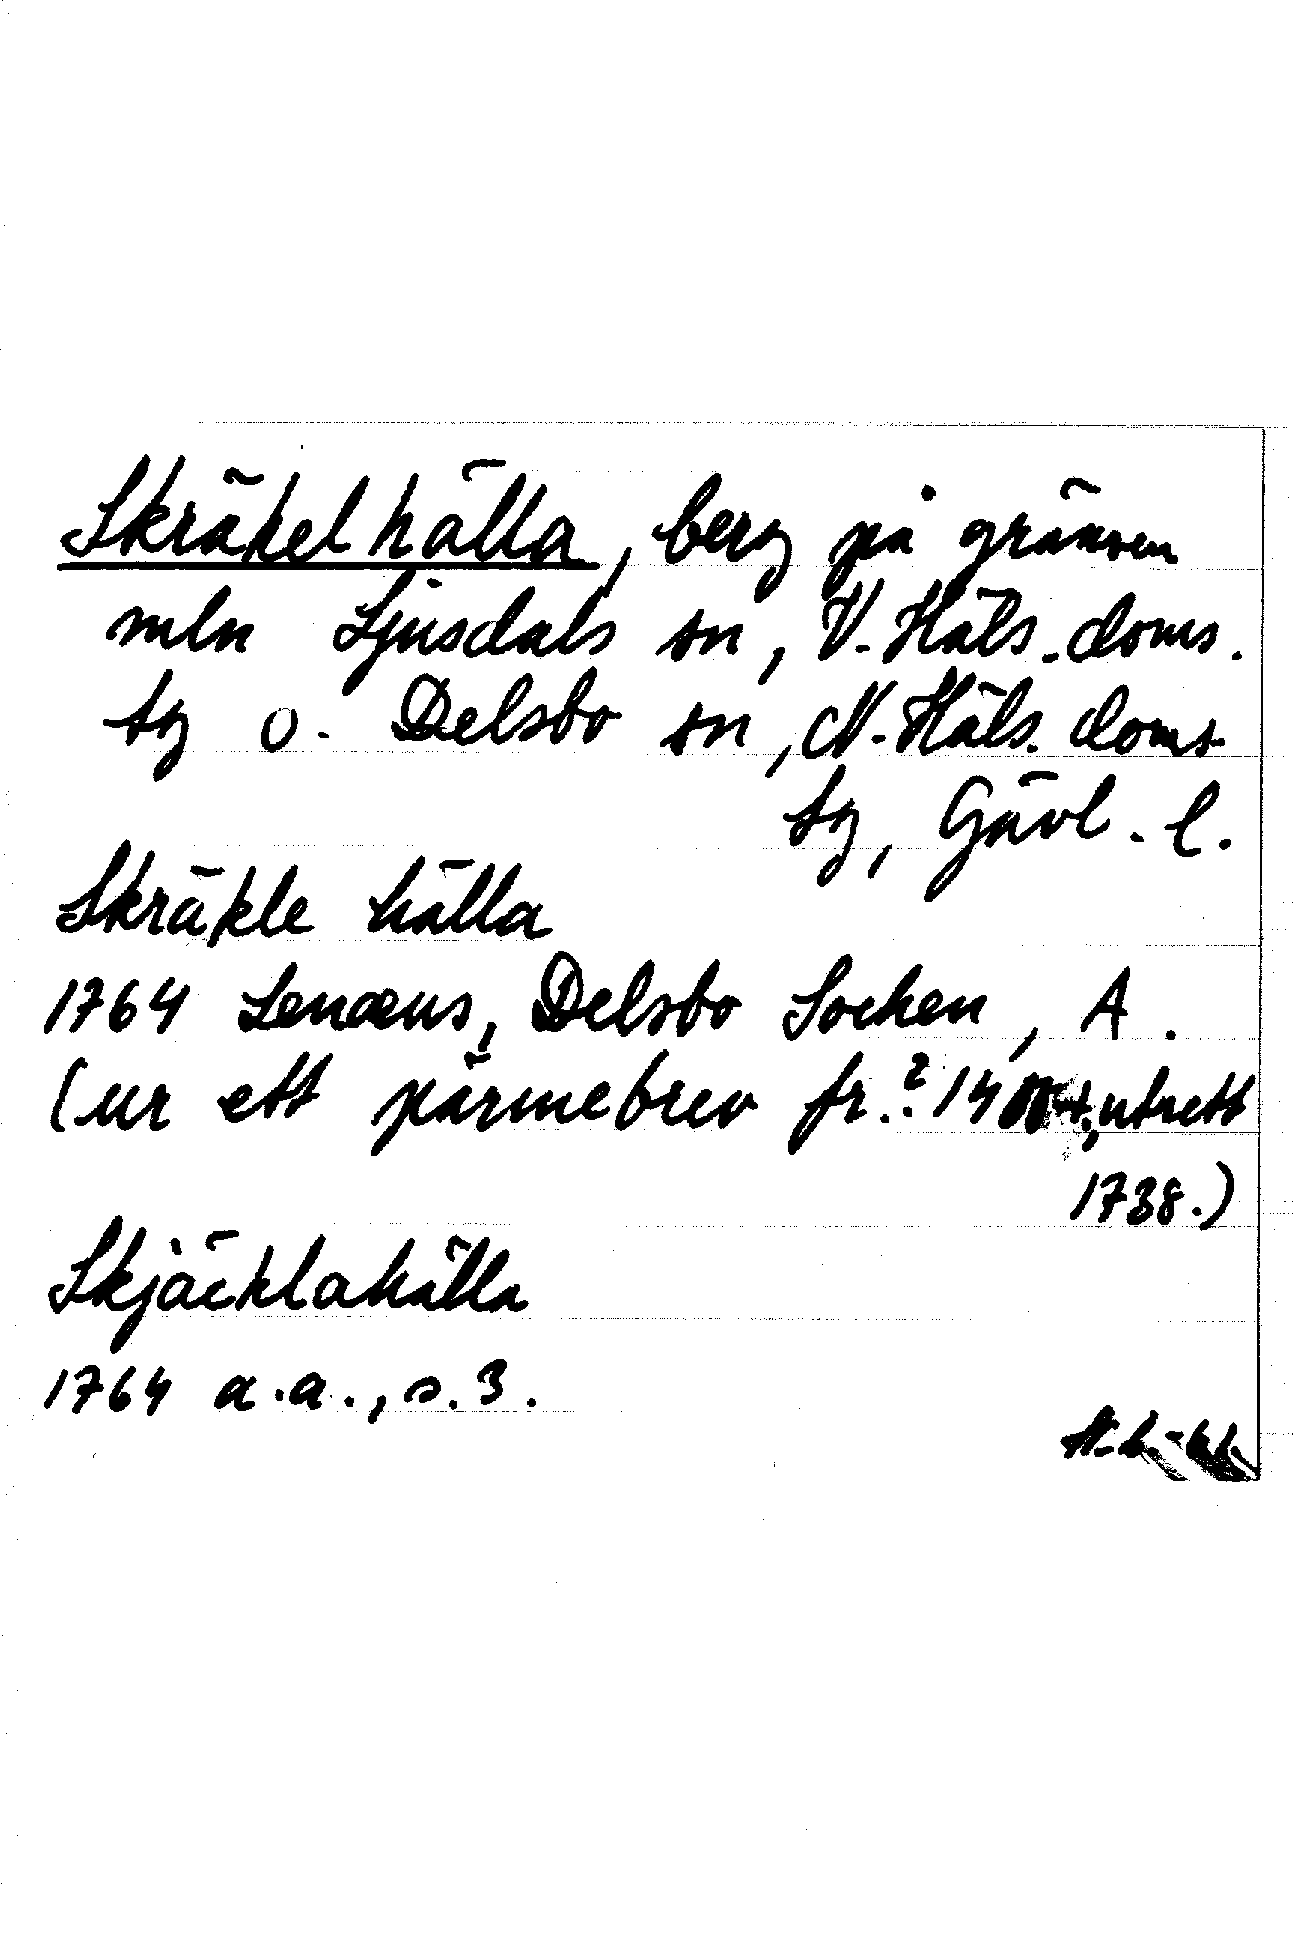 Skräkelhälla, berg på gränsen
mln Ljusdals sn, V. Häls. doms.
sg o. Delsbo sn, N. Häls. doms
sg, Gävl. l.
Skräkle hälla
1764 Lenæus, Delsbo Socken, A.
(ur ett pärmebrev fr. ? 1400-t, utsett
1738.)
Skjäcklahälla
1764 a.a., s. 3.